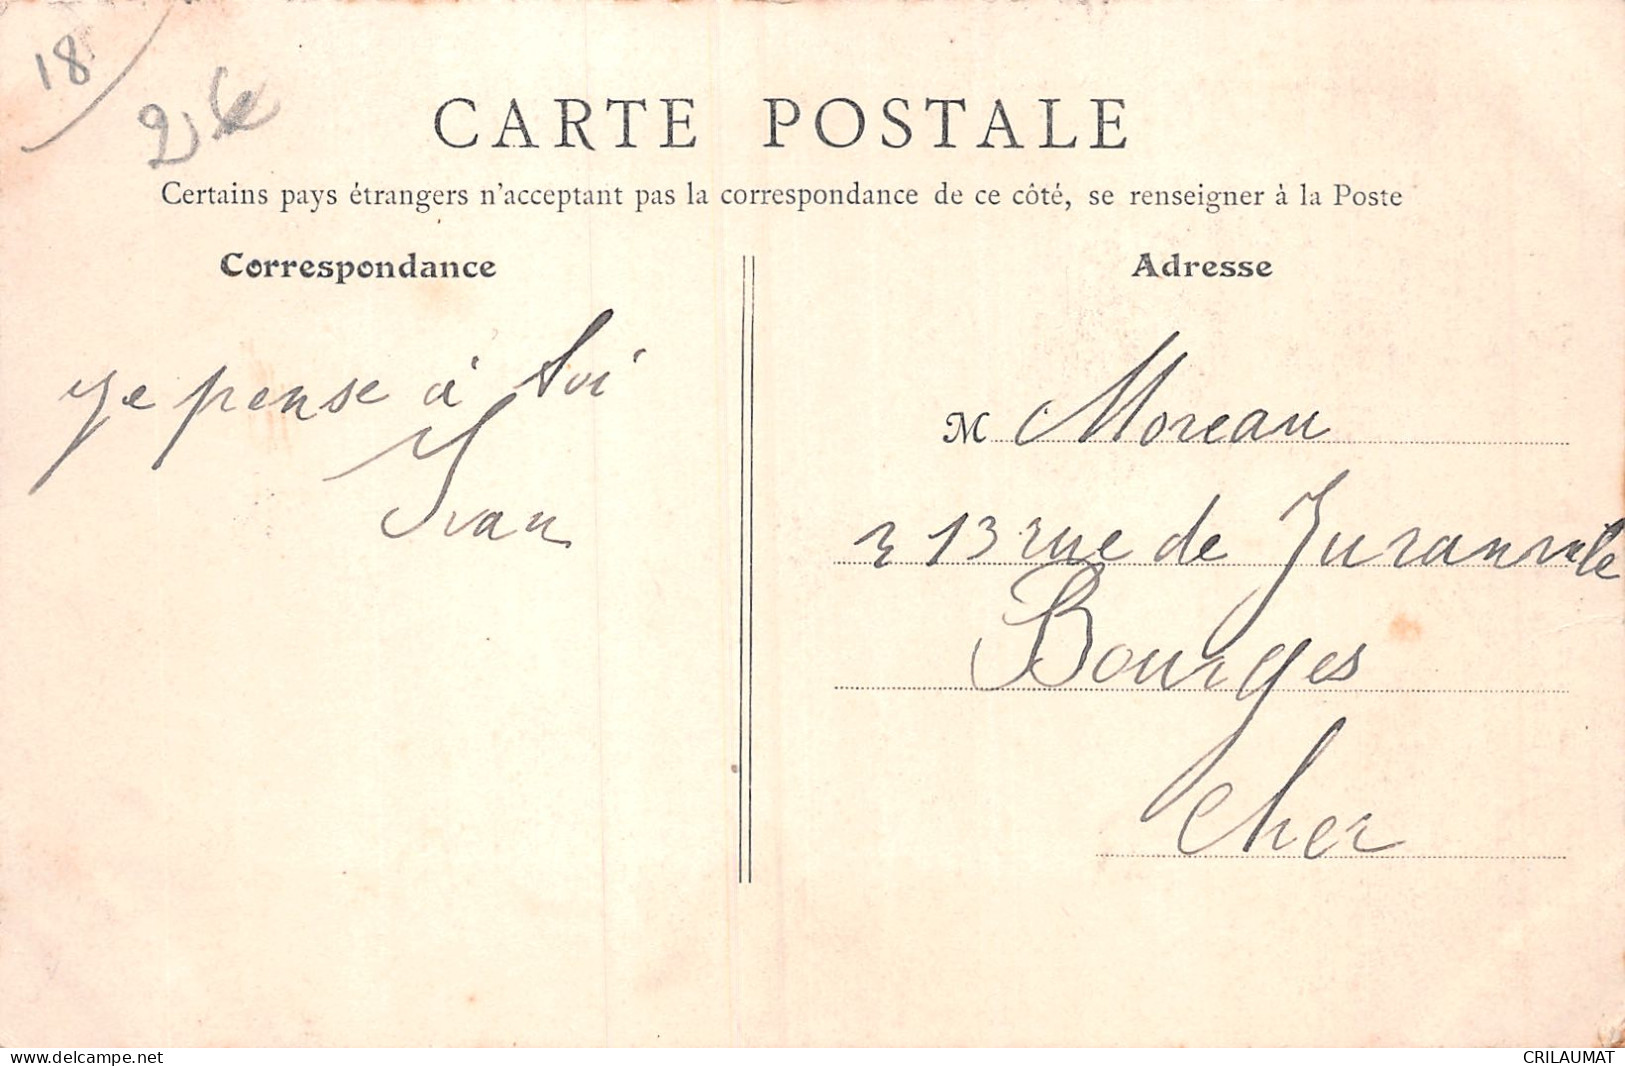 18
CARTE POSTALE
Certains pays étrangers n'acceptant pas la correspondance de ce côté, se renseigner à la Poste
Correspondance
je pense à toi
Ivan
Adresse
M Moreau
13 rue de Juranville
Bourges
Cher
www.delcampe.net
CRILAUMAT